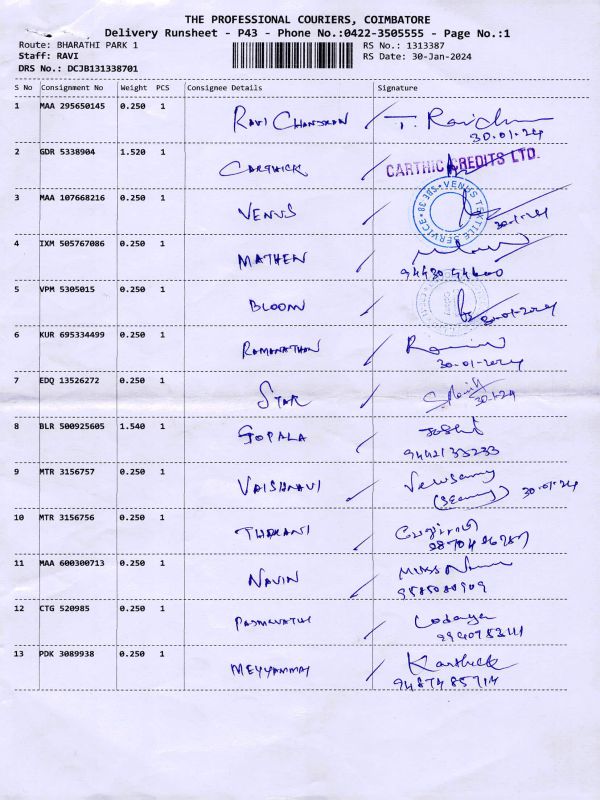 THE PROFESSIONAL COURIERS, COIMBATORE
Delivery Runsheet - P43 - Phone No.:0422-3505555 - Page No.:1
Route: BHARATHI PARK 1 RS No.: 1313387
Staff: RAVI RS Date: 30-Jan-2024
DRS No.: DCJB131338701
S No Consignment No Weight PCS Consignee Details Signature
1 MAA 295650145 0.250 1 RAVI CHANDRAN T. Ravichan
30.01.24
2 GDR 5338904 1.520 1 CARTHICK CARTHIC CREDITS LTD.
3 MAA 107668216 0.250 1 VENUS VENUS TEXTILE SERVICE
30-1-24
4 IXM 505767086 0.250 1 MATHEN
94430 94600
5 VPM 5305015 0.250 1 BLOOM
30-01-2024
6 KUR 695334499 0.250 1 RAMANATHAN
30-01-2024
7 EDQ 13526272 0.250 1 STAR
30-1-24
8 BLR 500925605 1.540 1 GOPALA Joshi
9442133233
9 MTR 3156757 0.250 1 VAISHNAVI
30.01.24
10 MTR 3156756 0.250 1 THARANI
11 MAA 600300713 0.250 1 NAVIN
9585080909
12 CTG 520985 0.250 1 PADMAVATHI
13 PDK 3089938 0.250 1 MEYYAMMAI Karthick
9487485714